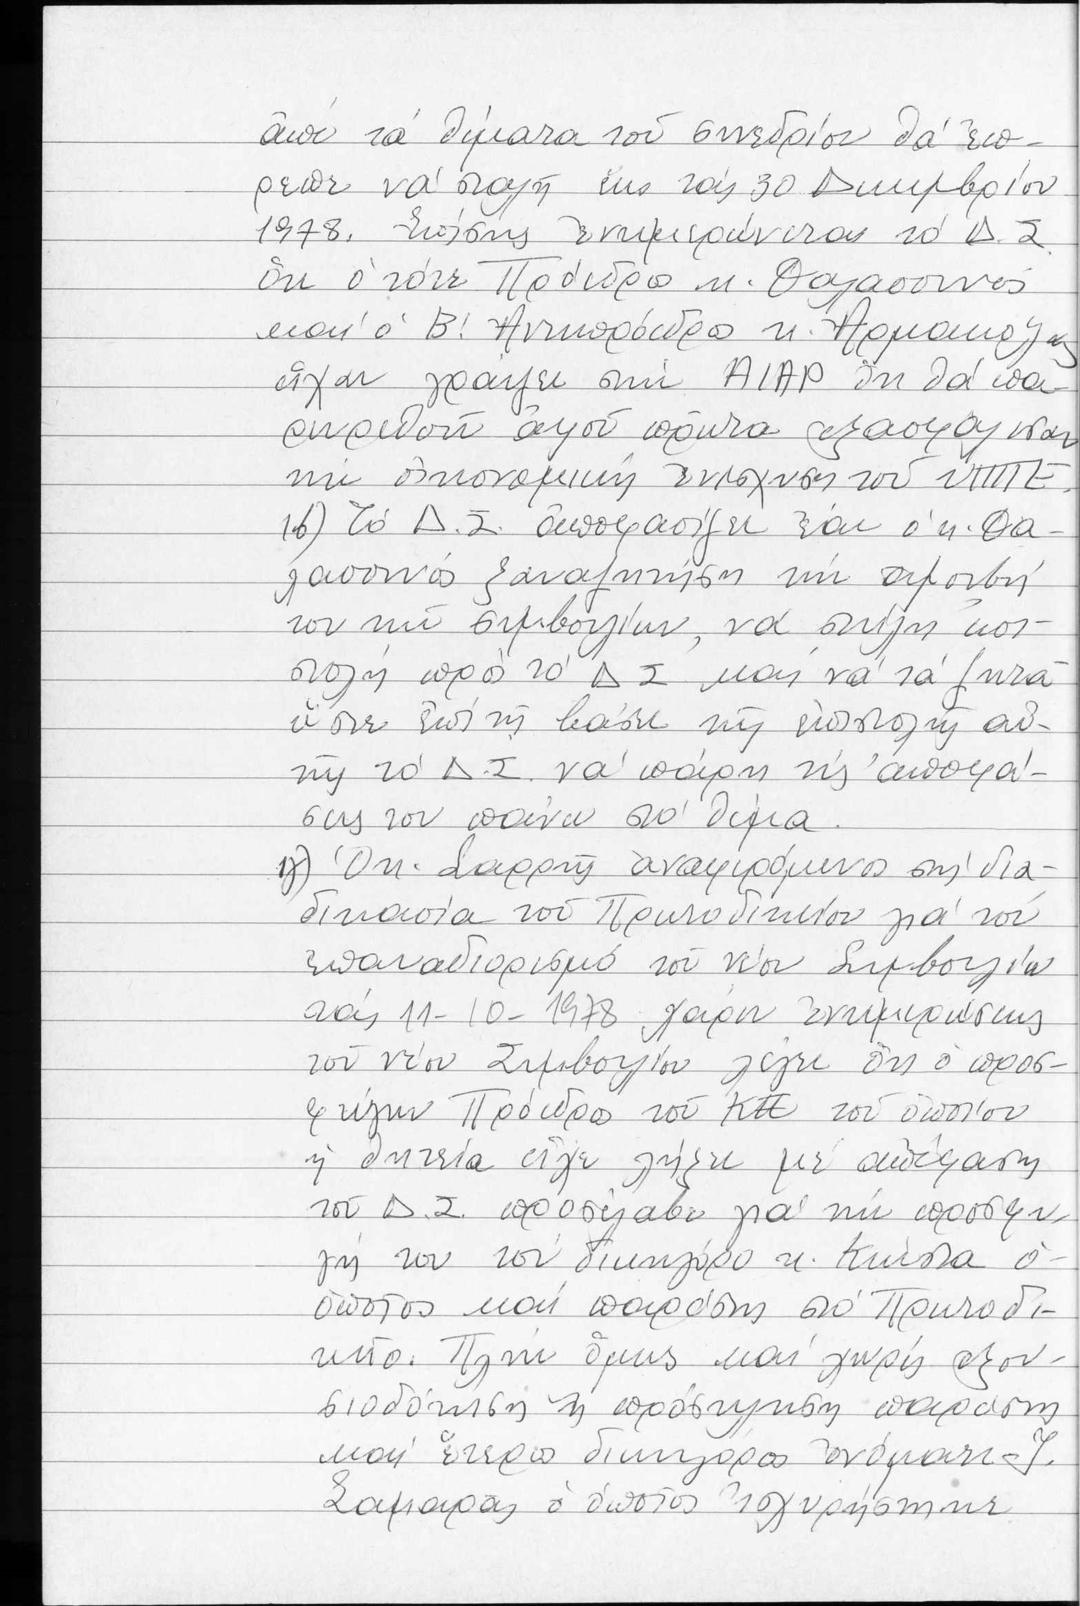 ἀπό τά θέματα τοῦ συνεδρίου θά ἔπ-
ρεπε νά σταλῆ ἕως τάς 30 Δεκεμβρίου
1978. Ἐπίσης ἐνημερώνεται τό Δ.Σ.
ὅτι ὁ τότε Πρόεδρος κ. Θαλασσινός
καί ὁ Β! Ἀντιπρόεδρος κ.
εἶχαν γράψει στήν AIAP ὅτι θά πα-
ρευρεθοῦν ἀφοῦ πρῶτα ἐξασφαλίσουν
τήν οἰκονομική ἐνίσχυση τοῦ ΥΠΠΕ.
1β) Τό Δ.Σ. ἀποφασίζει ἐάν ὁ κ. Θα-
λασσινός ξαναζητήση τήν ἀμοιβή
του τῶν συμβουλίων, νά στείλη ἐπι-
στολή πρός τό Δ Σ καί νά τά ζητᾶ
ὥστε ἐπί τῆ βάσει τῆς ἐπιστολῆς αὐ-
τῆς τό Δ.Σ. νά πάρη τίς ἀποφά-
σεις του πάνω στό θέμα.
1γ) Ὁ κ. Σαρρῆς ἀναφερόμενος στή δια-
δικασία τοῦ Πρωτοδικείου γιά τόν
ἐπαναδιορισμό τοῦ νέου Συμβουλίου
τάς 11-10-1978 χάριν ἐνημερώσεως
τοῦ νέου Συμβουλίου λέγει ὅτι ὁ προσ-
φύγων Πρόεδρος τοῦ ΚΕΕ τοῦ ὁποίου
ἡ θητεία εἶχε λήξει μέ ἀπόφαση
τοῦ Δ.Σ. προσέλαβε γιά τήν προσφυ-
γή του τόν δικηγόρο κ. Κιέστα ὁ
ὁποῖος καί παρέστη στό Πρωτοδι-
κεῖο. Πλήν ὅμως καί χωρίς ἐξου-
σιοδότηση ἤ πρόσκληση παρέστη
καί ἕτερος δικηγόρος ὀνόματι Ἰ.
Σαμαρᾶς ὁ ὁποῖος ἰσχυρίστηκε